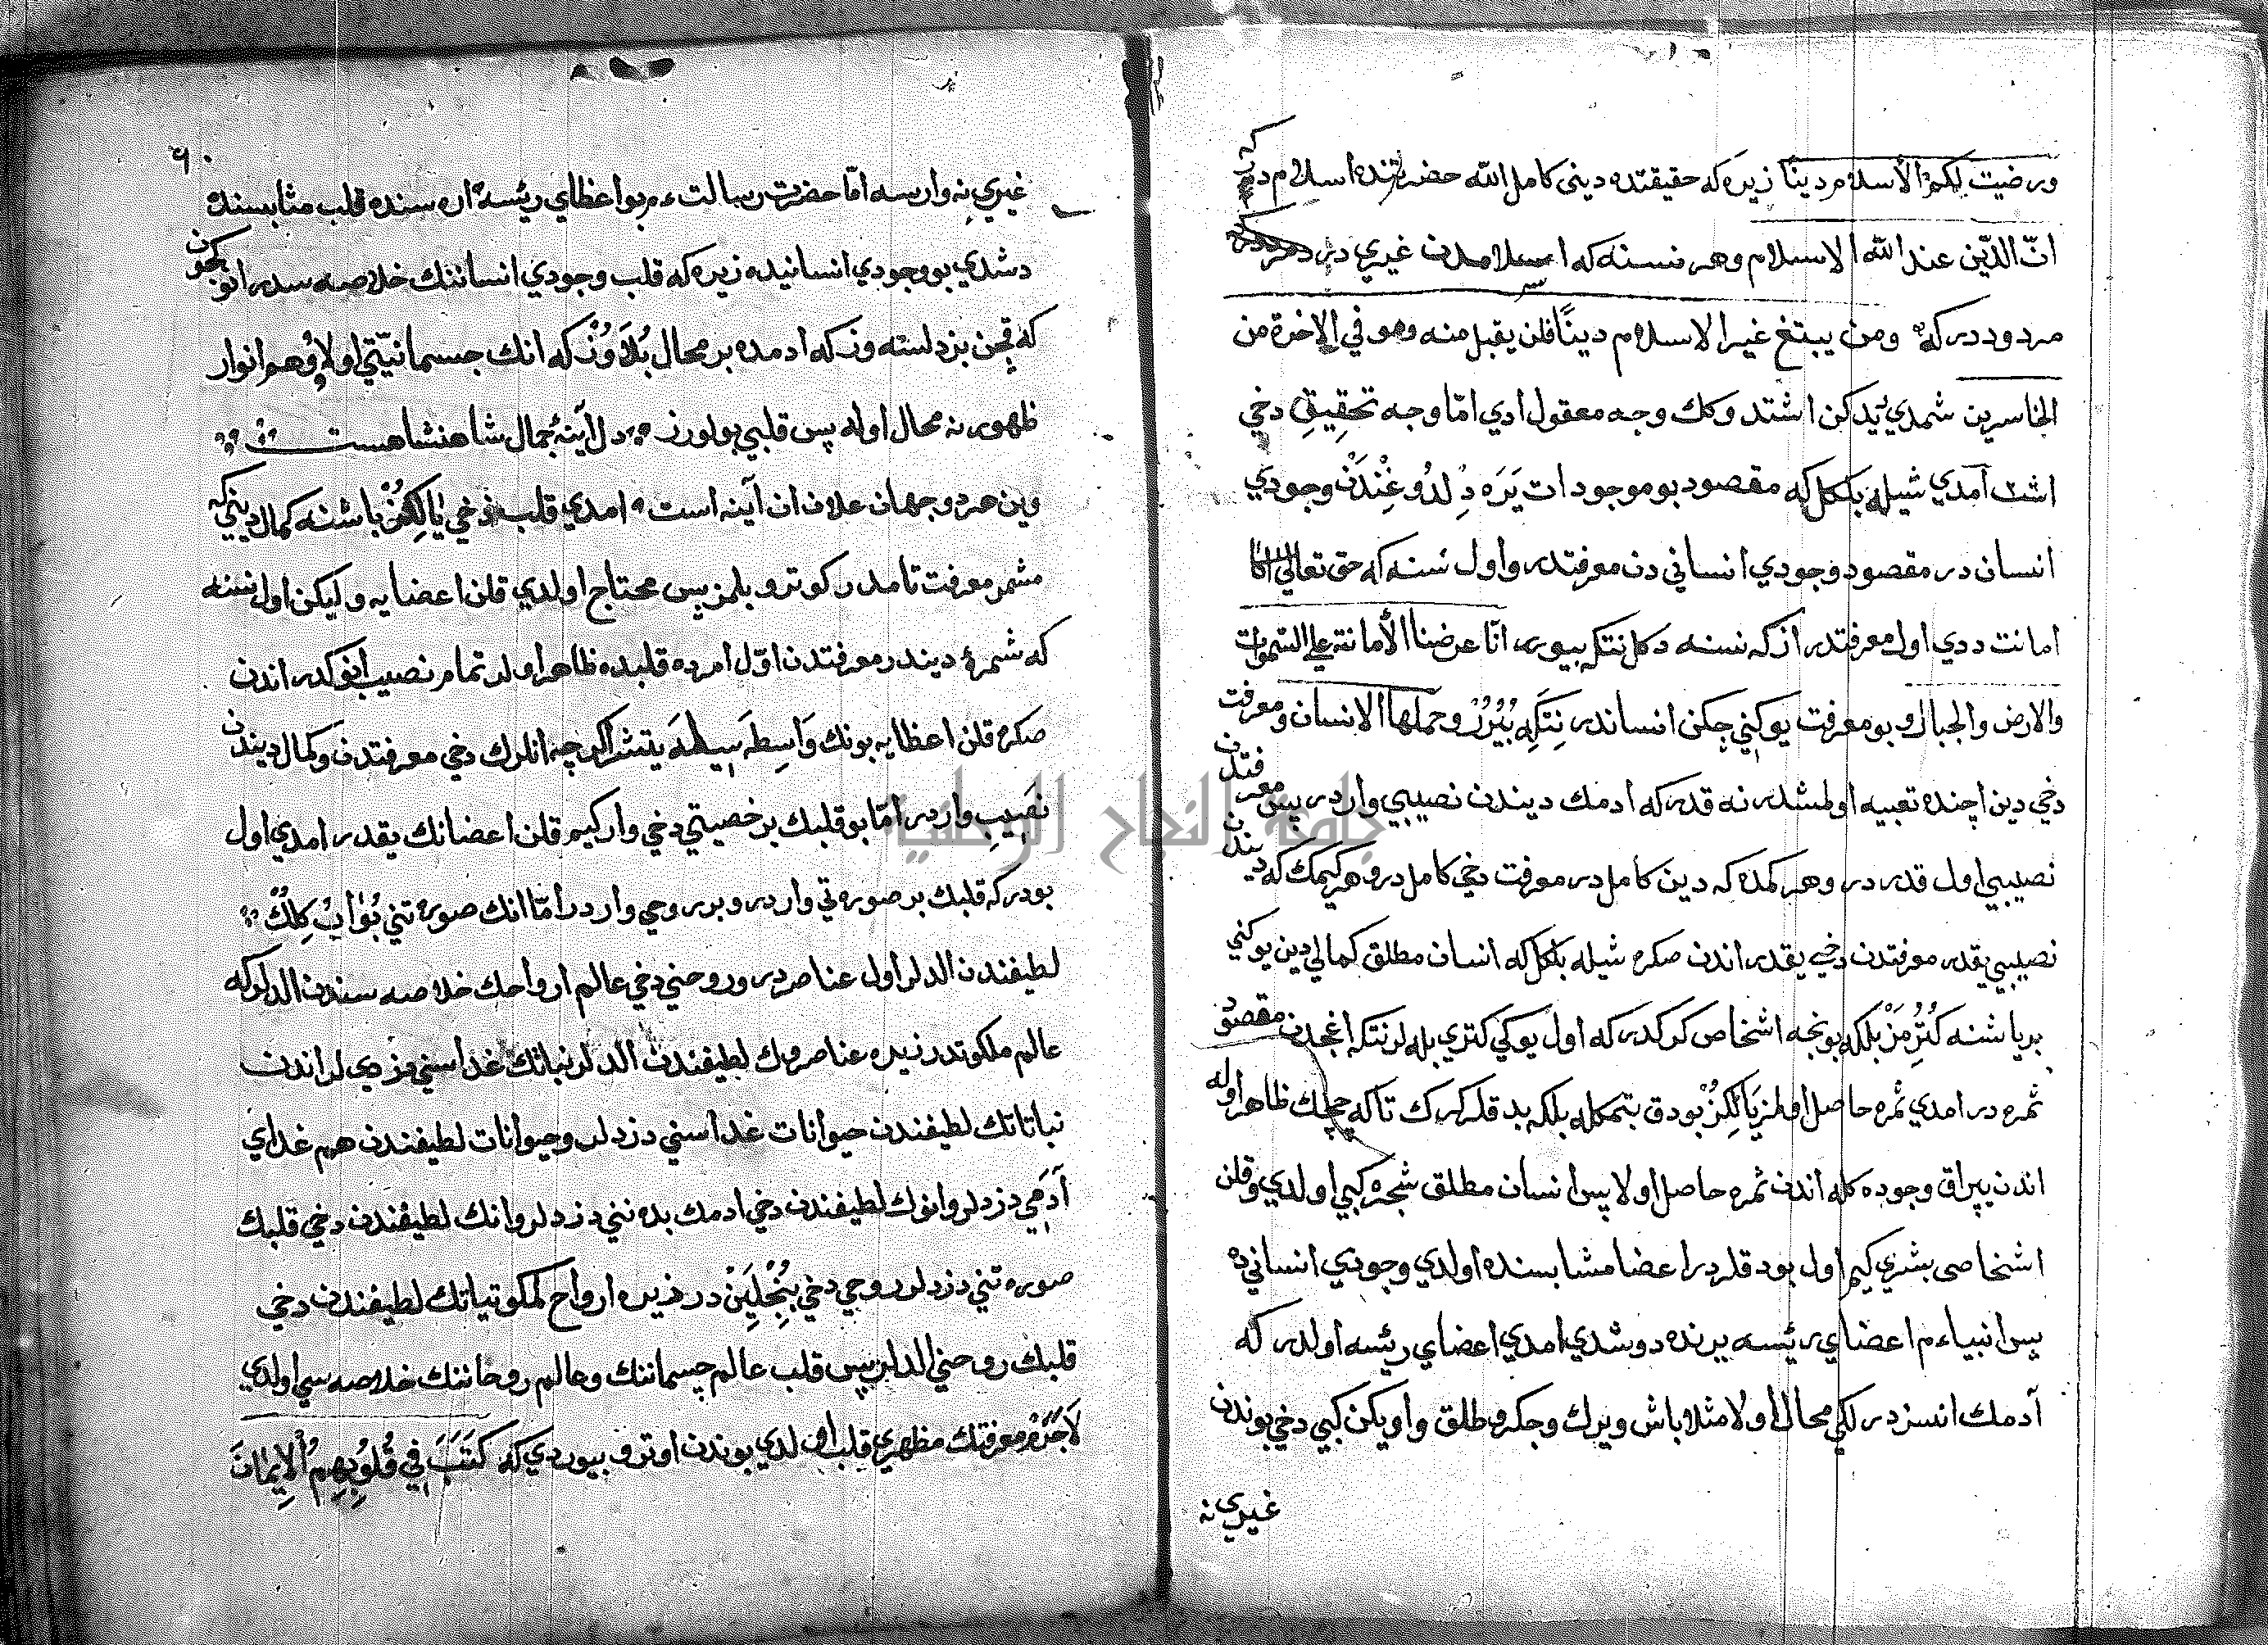 ورضيت لكم الأسلام دينا زيره كه حقيقتده ديني كامل الله حضرتنده اسلام در كه
انّ الدّين عند الله الاسلام وهر نسنه كه اسلامدن غيري در
مردوددر كه ومن يبتغ غير الاسلام دينًا فلن يقبل منه وهو في الاخرة من
الخاسرين شمدي يدكن اشتد وكك وجه معقول ادي امّا وجه تحقيقِي دخي
اشت امدي شيله بلكل كه مقصود بو موجودات يَرَه دِلدُوغِنْدَنْ وجودي
انسان در مقصود وجودي انساني دن معرفتدر واول نسنه كه حق تعالى اكا
امانت ددي اول معرفتدر ازكه نسنه دكل نتكه بيورر انّا عرضنا الأمانة على السّموات
والارض والجبال وبو معرفت يوكني چكن انساندر نِتَكِه بُيُرُرْ وحملها الانسان ومعرفت
دخي دين اچنده تعبيه اولمشدر نه قدر كه ادمك ديندن نصيبي واردر پس معرفتدن
نصيبي اول قدر در وهر كمده كه دين كامل در معرفت دخي كامل در وهر كيمك كه ديندن
نصيبي يقدر معرفتدن دخي يقدر اندن صكره شيله بلكل كه انسان مطلق كمالي دين يوكني
بر باشنه كُتُرِمَزْ بلكه بونجه اشخاص كركدر كه اول يوكي كتري بله لر نتكه اغجدن مقصود
ثمره در امدي ثمره حاصل اولمز يالِكِزْ بودق بتمكله بلكه بدقلر كرك تاكه چچك ظاهر اوله
اندن يپراق وجوده كله اندن ثمره حاصل اولا پس انسان مطلق شجره كبي اولدي وقلن
اشخاصى بشري كيم اول بودقلردر اعضا مثابسنده اولدي وجودي انسانيده
پس انبياءم اعضاي رئيسه يرنده دوشدي امدي اعضاي رئيسه اولدر كه
آدمك انسزدرلكي محال اولا مثلا باش ويرك وجكر وطلق واويكن كبي دخي بوندن
غيري نه
٦٠
غيري نه وارسه امّا حضرت رسالت ءم بو اعظاي رئيسه اره سنده قلب مثابسنده
دشدي بو وجودي انسانيده زيره كه قلب وجودي انساننك خلاصه سدر انوكچون
كه قچن بزدلسته وز كه ادمده بر محال بُلاَوُزْ كه انك جسمانيّتي اولا وهم انوار
ظهورنه محال اوله پس قلبي بولورز دل آينهٔ جمال شاهنشاهست
وين هر دو جهان علاف ان آينه است امدي قلب دخي يالِكِزْ باشنه كمال ديني كه
مشمر معرفت تامدر كوترو بلمز پس محتاج اولدي قلن اعضايه وليكن اول نسنه
كه ثمرهٔ ديندر معرفتدن اوّل امرده قلبده ظاهر اولر تمام نصيب انوكدر اندن
صكره قلن اعظايه بونك وَاسِطَه سيله يتشر اكرچه انلرك دخي معرفتدن وكمال ديندن
نصيبِ واردر امّا بو قلبك بر خصيتي دخي وار كيم قلن اعضانك يقدر امدي اول
بودر كه قلبك بر صورتي واردر وبر روحي واردر امّا انك صورتني بُوْاِبْ كِلُكْ
لطيفندن الدلر اول عناصردر وروحني دخي عالم ارواحك خلاصه سندن الدلر كه
عالم ملكوتدر زيره عناصروك لطيفندن الدلر نباتك غداسني دزدي لر اندن
نباتاتك لطيفندن حيوانات غداسني دزدلر وحيوانات لطيفندن هم غداي
آدمي دزدلر وانوك لطيفندن دخي ادمك بدنني دزدلر وانك لطيفندن دخي قلبك
صورتني دزدلر روحي دخي بُنْجُلَيِنْ در زيره ارواح ملكوتياتك لطيفندن دخي
قلبك روحني الدلر پس قلب عالم جسماننك وعالم روحاننك خلاصه سي اولدي
لَا جَرَمْ معرفتك مظهري قلب اولدي بوندن اوترو بيوردي كه كَتَبَ فِي قُلُوبِهِمُ الْاِيمَانَ
جامعة النجاح الوطنية